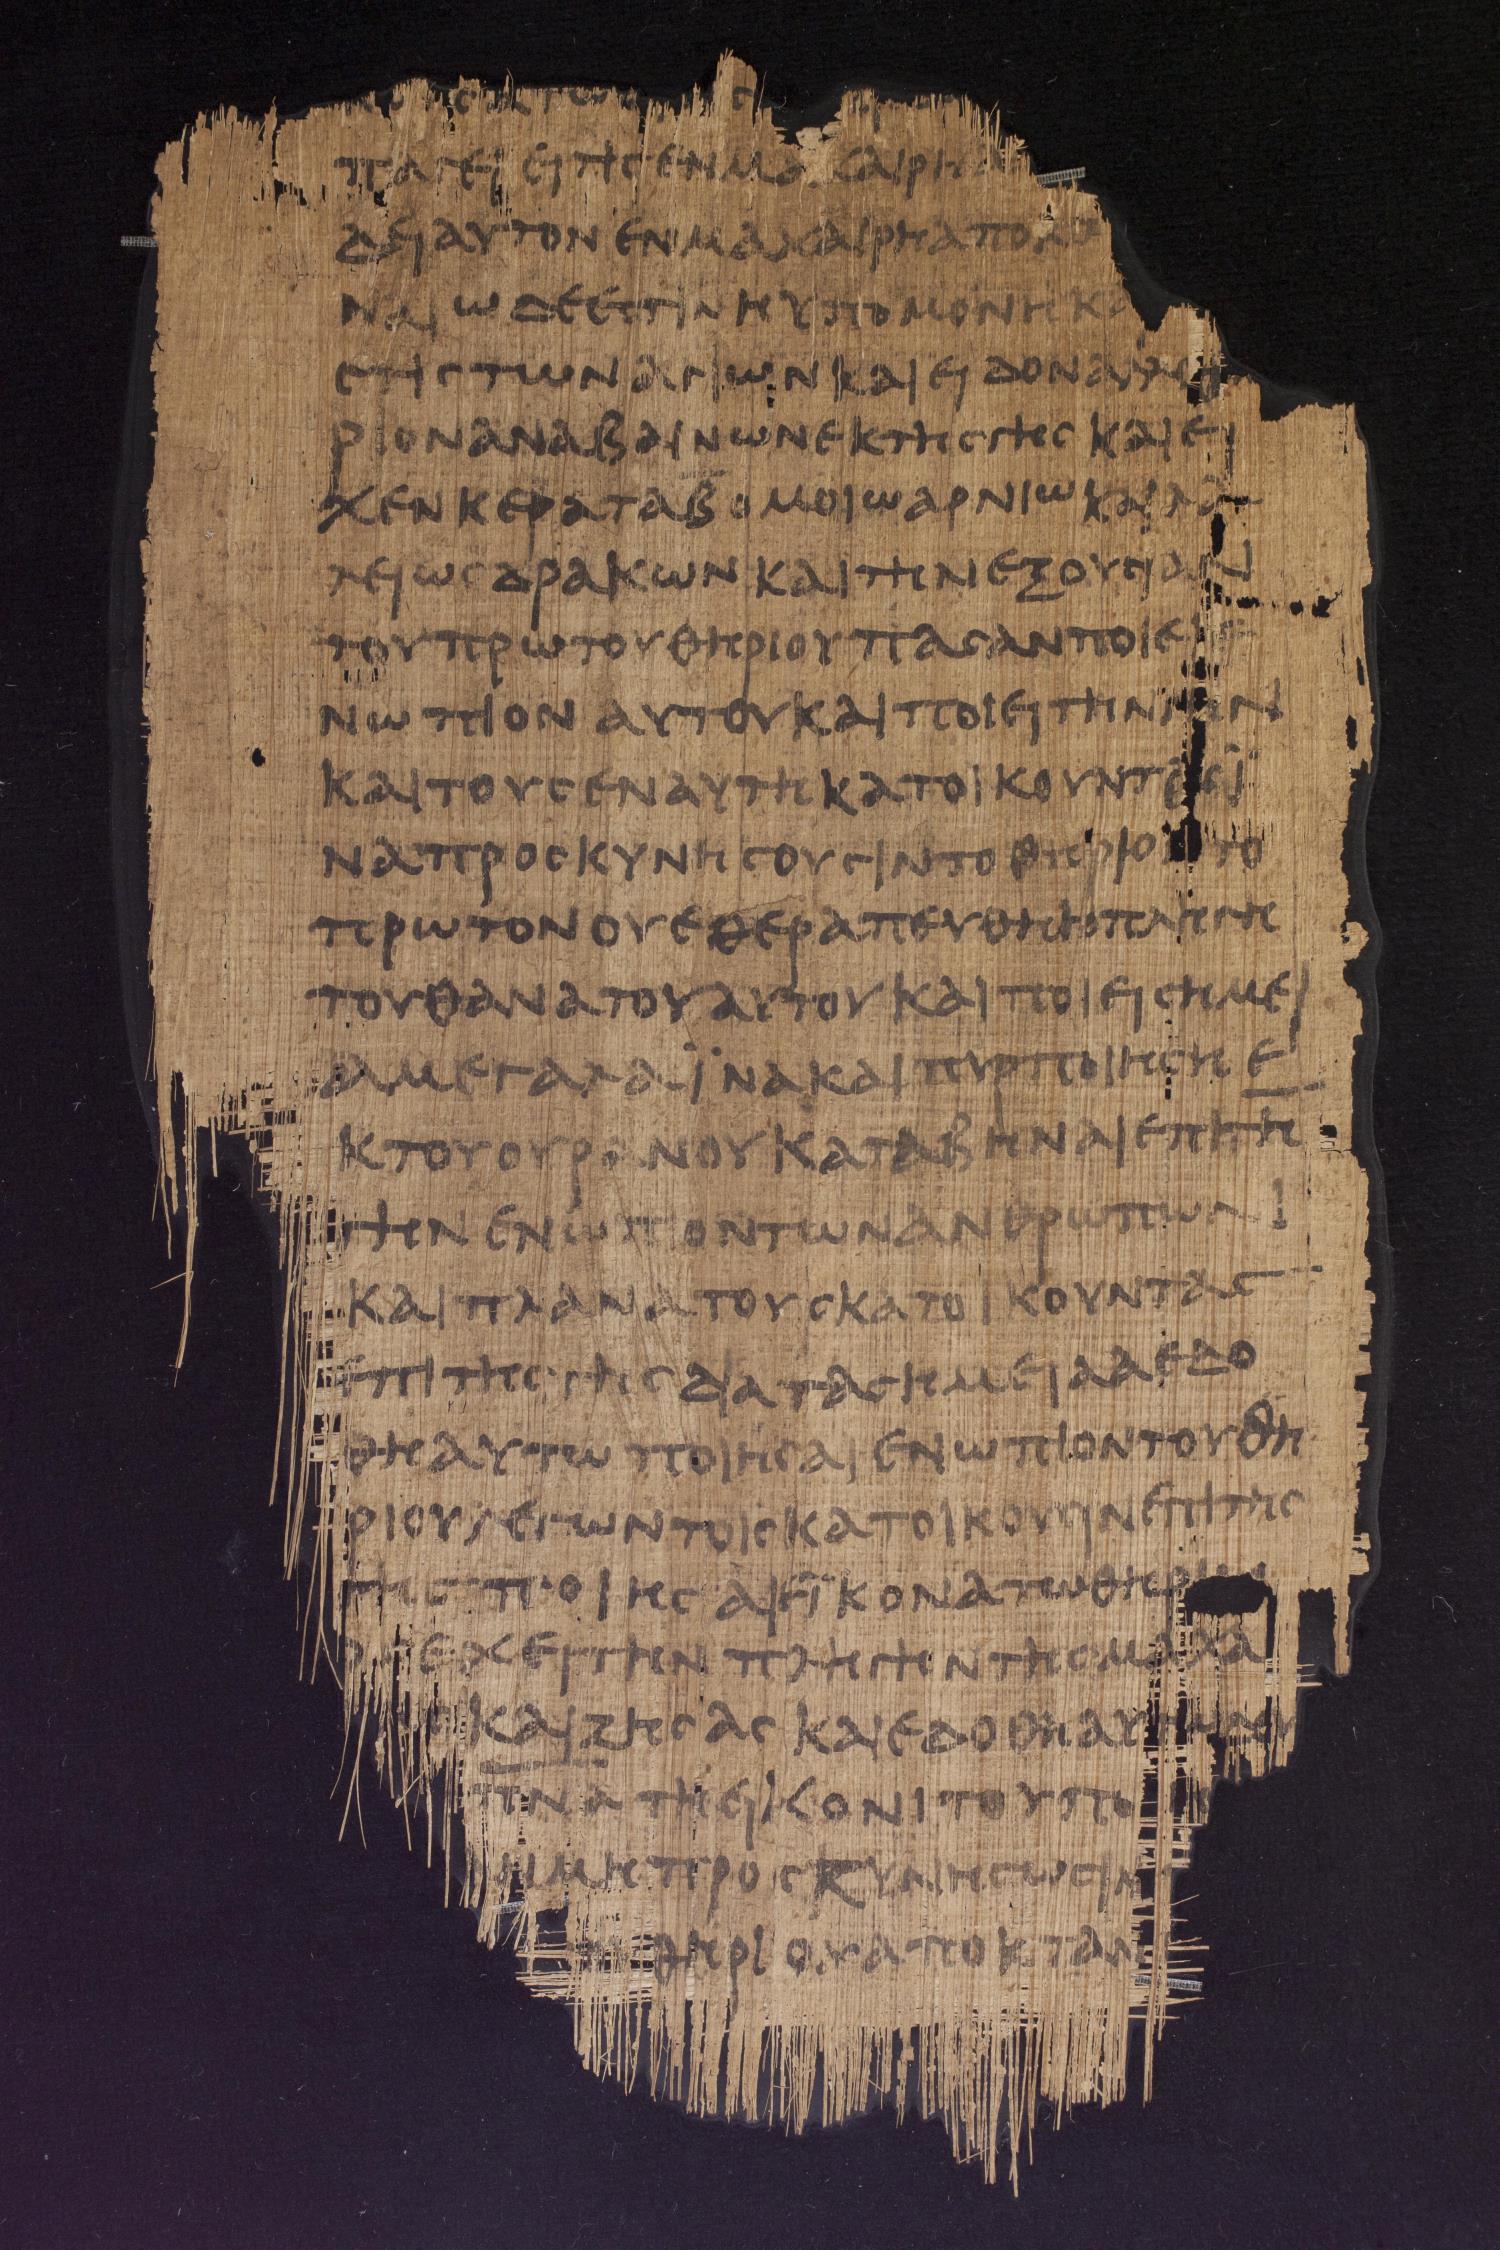 παγει ει τις εν μαχαιρη α
δει αυτον εν μαχαιρη αποκτ
ναι ωδε εστιν η υπομονη κα
στις των αγιων και ειδον αλλο
ριον αναβαινων εκ της γης και ει
χεν κερατα β ομοιω αρνιω και λα
λει ως δρακων και την εξουσιαν
του πρωτου θηριου πασαν ποιει ε
νωπιον αυτου και ποιει την γην
και τους εν αυτη κατοικουντας ϊ
να προσκυνησουσιν το θηριον το
πρωτον ου εθεραπευθη η πληγη
του θανατου αυτου και ποιει σημει
α μεγαλα ϊνα και πυρ ποιηση ε
κ του ουρανου καταβηναι επι τη
γην ενωπιον των ανθρωπων
και πλανα τους κατοικουντας
επι της γης δια τα σημεια α εδο
θη αυτω ποιησαι ενωπιον του θη
ριου λεγων τοις κατοικουσιν επι της
γης ποιησαι εϊκονα τω θηριω
ος εχει την πληγην της μαχα
και ζησας και εδοθη αυτω
πνα τη εικονι του
μη προσκυνησωσιν
θηριον αποκταν